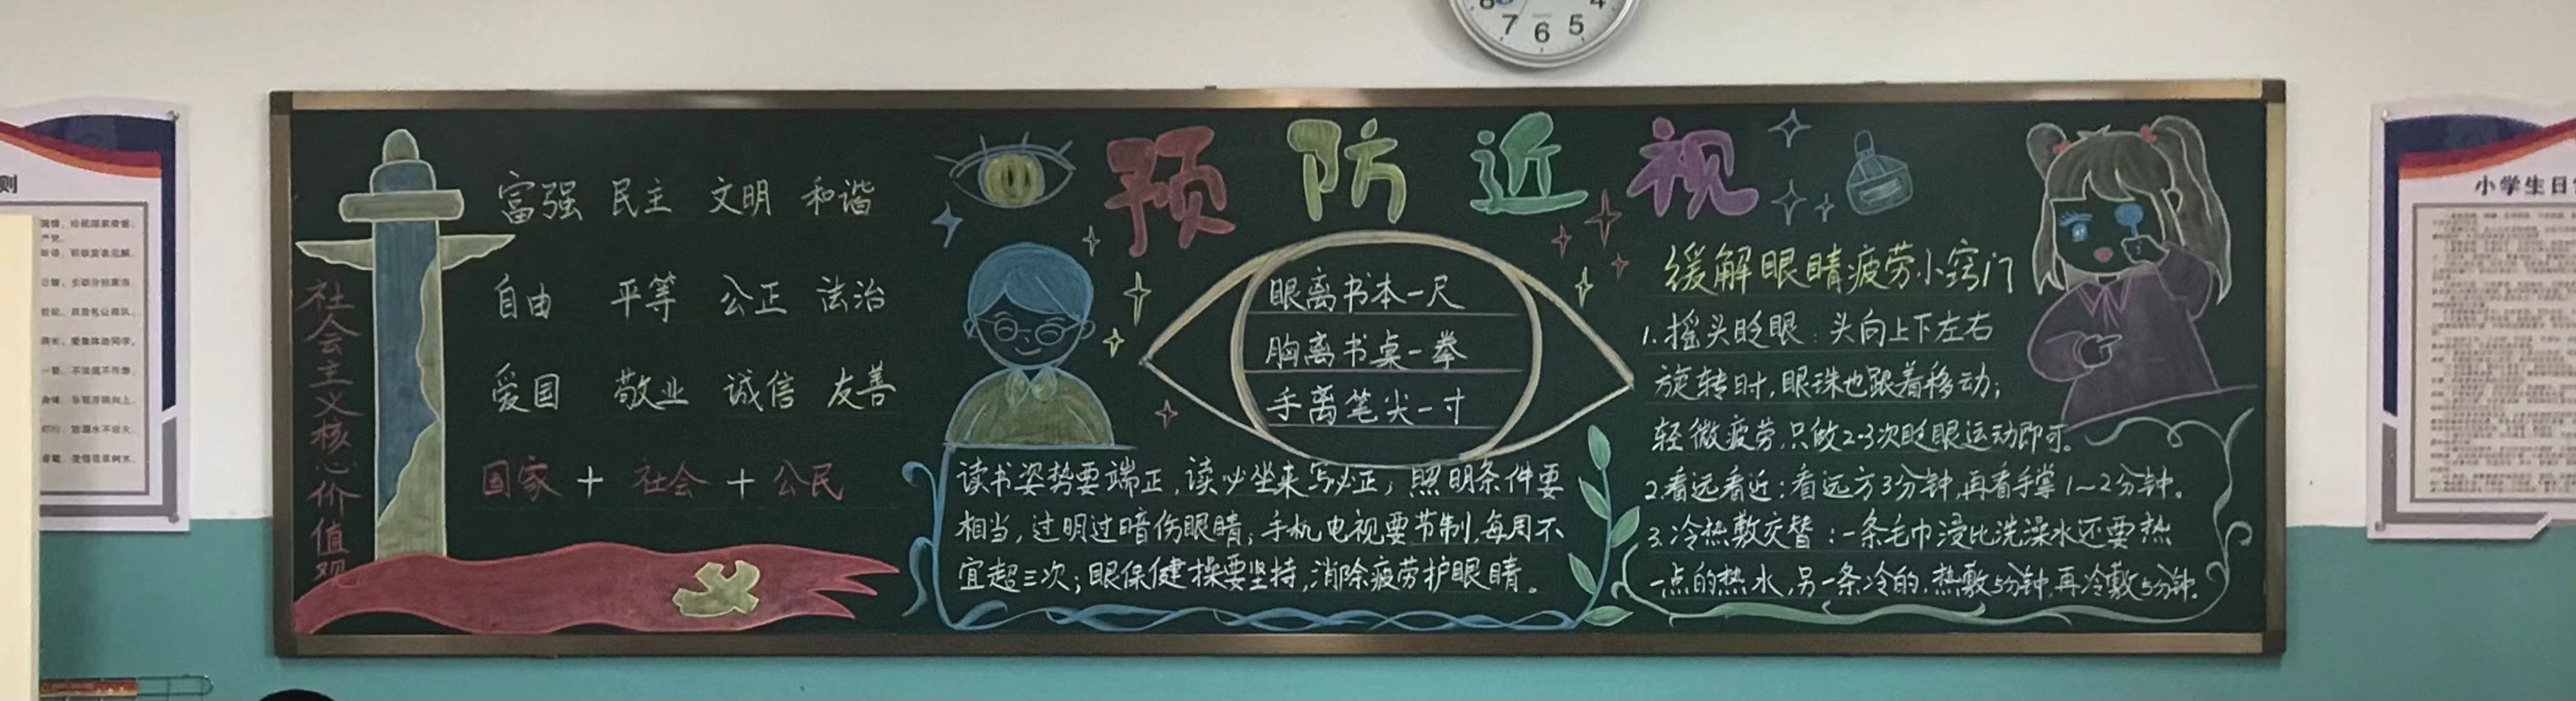 社会主义核心价值观
富强 民主 文明 和谐
自由 平等 公正 法治
爱国 敬业 诚信 友善
国家 + 社会 + 公民
预防近视
眼离书本一尺
胸离书桌一拳
手离笔尖一寸
读书姿势要端正,读必坐来写必正;照明条件要
相当,过明过暗伤眼睛;手机电视要节制,每周不
宜超三次;眼保健操要坚持,消除疲劳护眼睛。
缓解眼睛疲劳小窍门
1.摇头眨眼:头向上下左右
旋转时,眼珠也跟着移动;
轻微疲劳,只做2-3次眨眼运动即可。
2.看远看近:看远方3分钟,再看手掌1~2分钟。
3.冷热敷交替:一条毛巾浸比洗澡水还要热
一点的热水,另一条冷的,热敷5分钟,再冷敷5分钟。
8 7 6 5 4
则
小学生日